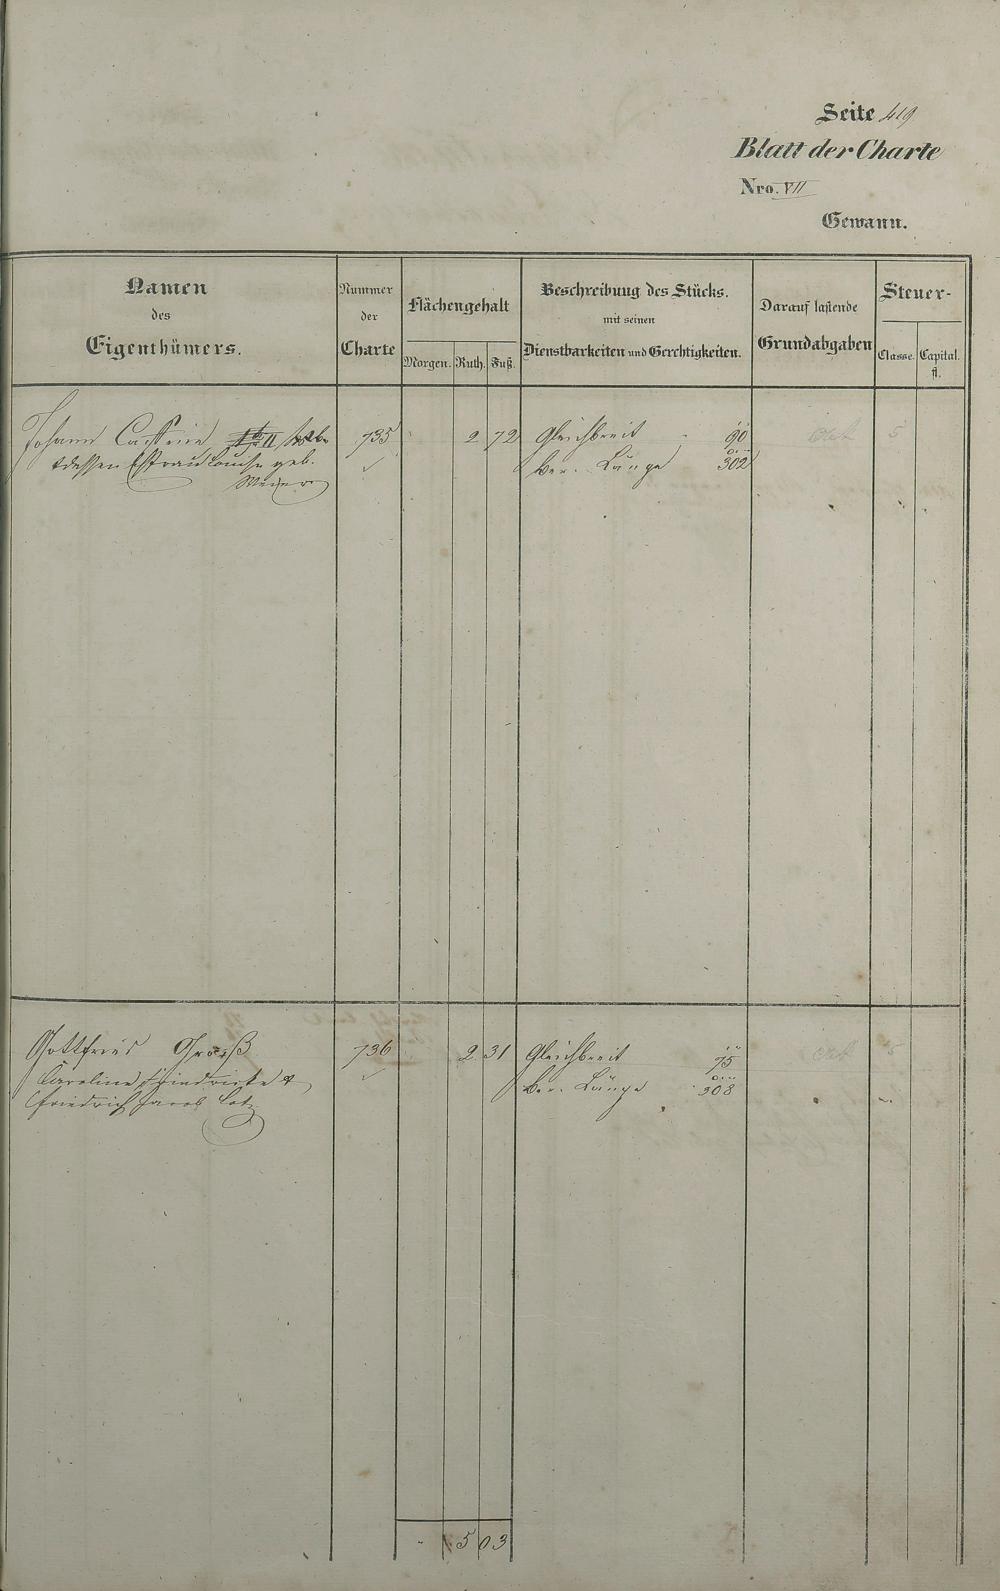 Seite 419
Blatt der Charte
Nro. VII
Gewann.
Namen
des
Eigenthümers.
Nummer
der
Charte
Flächengehalt
Morgen. Ruth. Fuß.
Beschreibung des Stücks.
mit seinen
Dienstbarkeiten und Gerechtigkeiten.
Darauf lastende
Grundabgaben
Steuer-
Classe. Capital.
fl.
Johann 735 2 72 Gleichbreit 90 5
dessen Ehefrau Louise geb. ber. Länge 302
Gottfried Groß 736 2 31 Gleichbreit 75 5
Caroline, Friedricke & ber. Länge 308
Friedrich Jacob Lotz
5 03